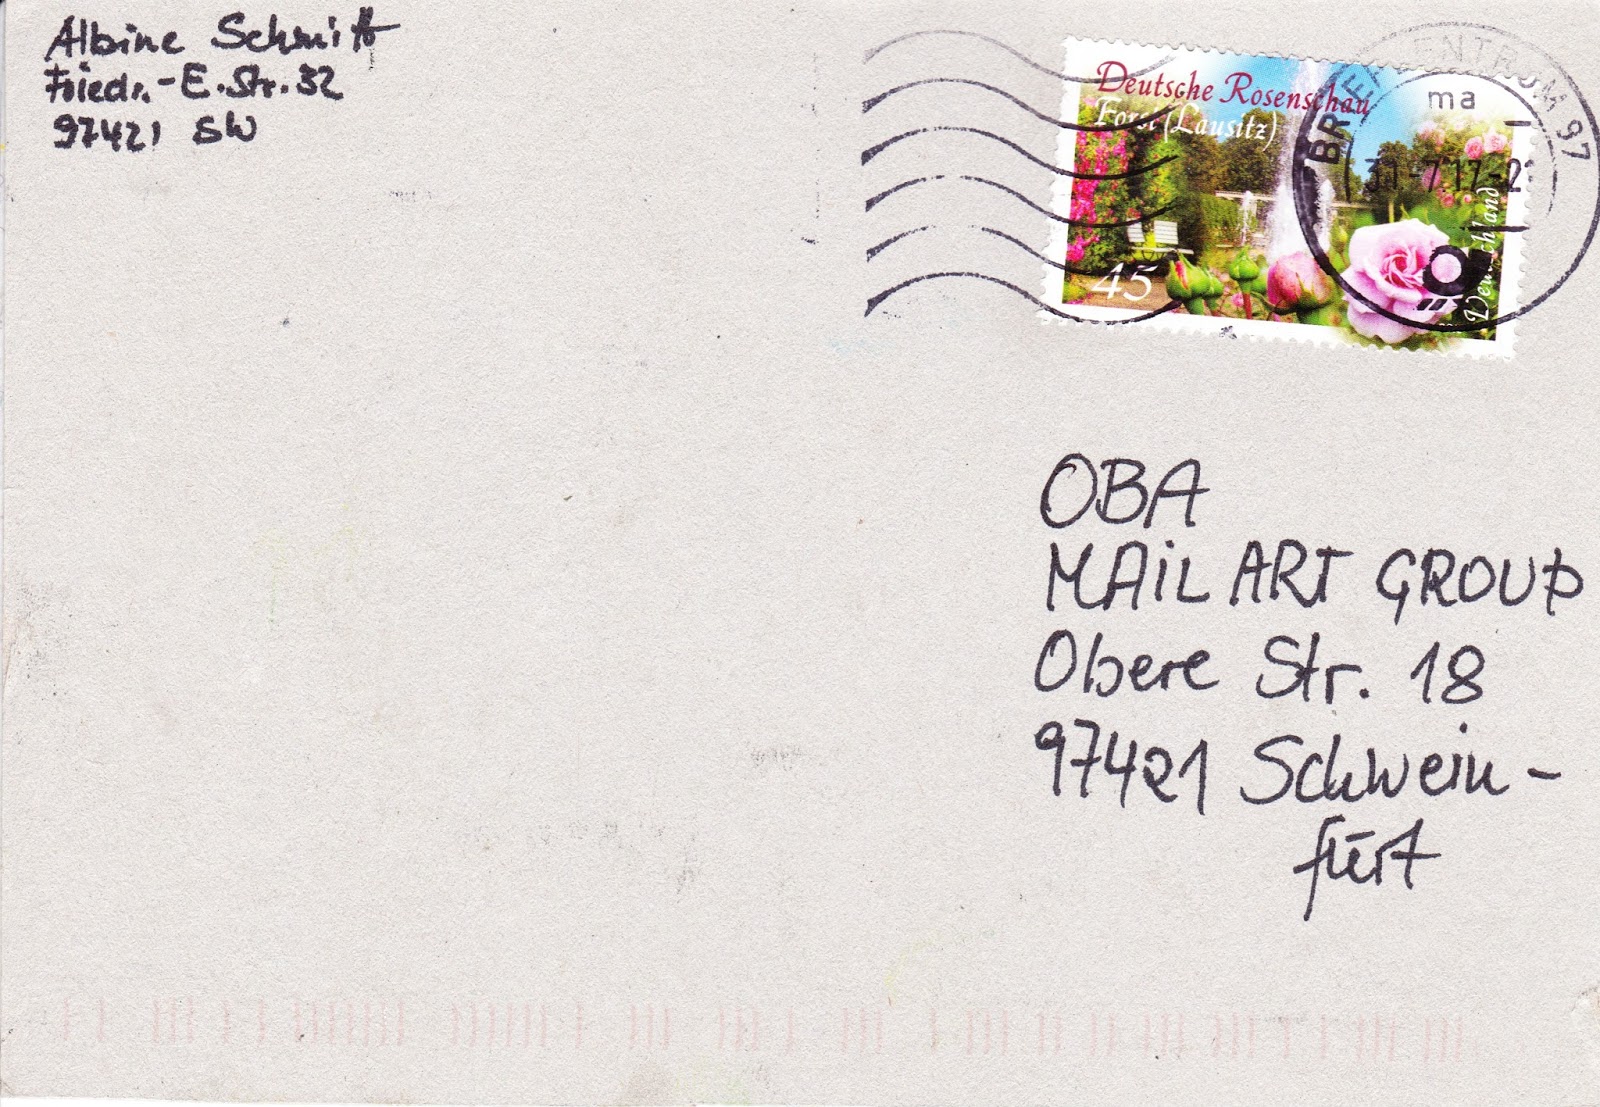 Albine Schmitt
Friedr.-E.Str.32
97421 SW
Deutsche Rosenschau
Forst (Lausitz)
45
Deutschland
BRIEFZENTRUM 97
ma
31-7.17-2
OBA
MAiL ART GROUP
Obere Str. 18
97421 Schwein-
furt